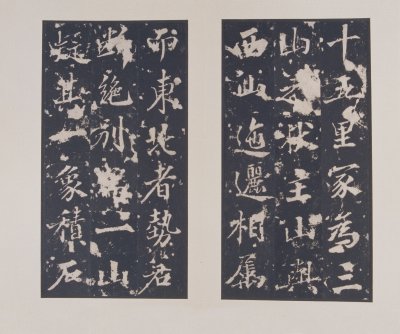 十五里冢為三
山狀主山與
西山迤邐相屬
而東北者勢若
斷絕别一山
疑其象積石